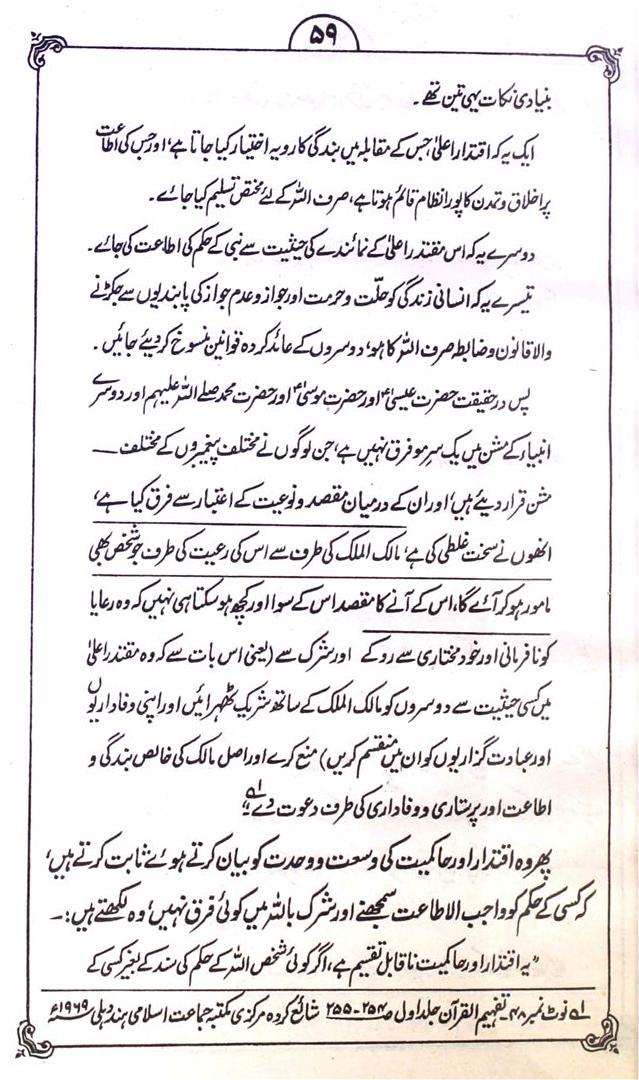 ۵۹
بنیادی نکات یہی تین تھے۔
ایک یہ کہ اقتدار اعلیٰ، جس کے مقابلہ میں بندگی کا رویہ اختیار کیا جاتا ہے، اور جس کی اطاعت
پر اخلاق و تمدن کا پورا نظام قائم ہوتا ہے، صرف اللہ کے لئے مختص تسلیم کیا جائے۔
دوسرے یہ کہ اس مقتدر اعلیٰ کے نمائندے کی حیثیت سے نبی کے حکم کی اطاعت کی جائے۔
تیسرے یہ کہ انسانی زندگی کو حلّت و حرمت اور جواز و عدم جواز کی پابندیوں سے جکڑنے
والا قانون و ضابطہ صرف اللہ کا ہو، دوسروں کے عائد کردہ قوانین منسوخ کر دیئے جائیں۔
پس درحقیقت حضرت عیسیٰؑ اور حضرت موسیٰؑ اور حضرت محمد صلے اللہ علیہم اور دوسرے
انبیاء کے مشن میں یک سرِ مو فرق نہیں ہے، جن لوگوں نے مختلف پیغمبروں کے مختلف ــــ
مشن قرار دیئے ہیں، اور ان کے درمیان مقصد و نوعیت کے اعتبار سے فرق کیا ہے،
انھوں نے سخت غلطی کی ہے، مالک الملک کی طرف سے اس کی رعیت کی طرف جو شخص بھی
مامور ہو کر آئے گا، اس کے آنے کا مقصد اس کے سوا اور کچھ ہو سکتا ہی نہیں کہ وہ رعایا
کو نافرمانی اور خود مختاری سے روکے اور شرک سے (یعنی اس بات سے کہ وہ مقتدر اعلیٰ
میں کسی حیثیت سے دوسروں کو مالک الملک کے ساتھ شریک ٹھہرائیں اور اپنی وفاداریوں
اور عبادت گزاریوں کو ان میں منقسم کریں) منع کرے اور اصل مالک کی خالص بندگی و
اطاعت اور پرستاری و وفاداری کی طرف دعوت دے"۱؎
پھر وہ اقتدار اور حاکمیت کی وسعت و وحدت کو بیان کرتے ہوئے ثابت کرتے ہیں،
کہ کسی کے حکم کو واجب الاطاعت سمجھنے اور شرک باللہ میں کوئی فرق نہیں، وہ لکھتے ہیں:۔
"یہ اقتدار اور حاکمیت ناقابل تقسیم ہے، اگر کوئی شخص اللہ کے حکم کی سند کے بغیر کسی کے
۱؎ نوٹ نمبر ۴۸۔ تفہیم القرآن جلد اول ص ۲۵۴-۲۵۵ شائع کردہ مرکزی مکتبہ جماعت اسلامی ہند دہلی سنہ ۱۹۶۹ء